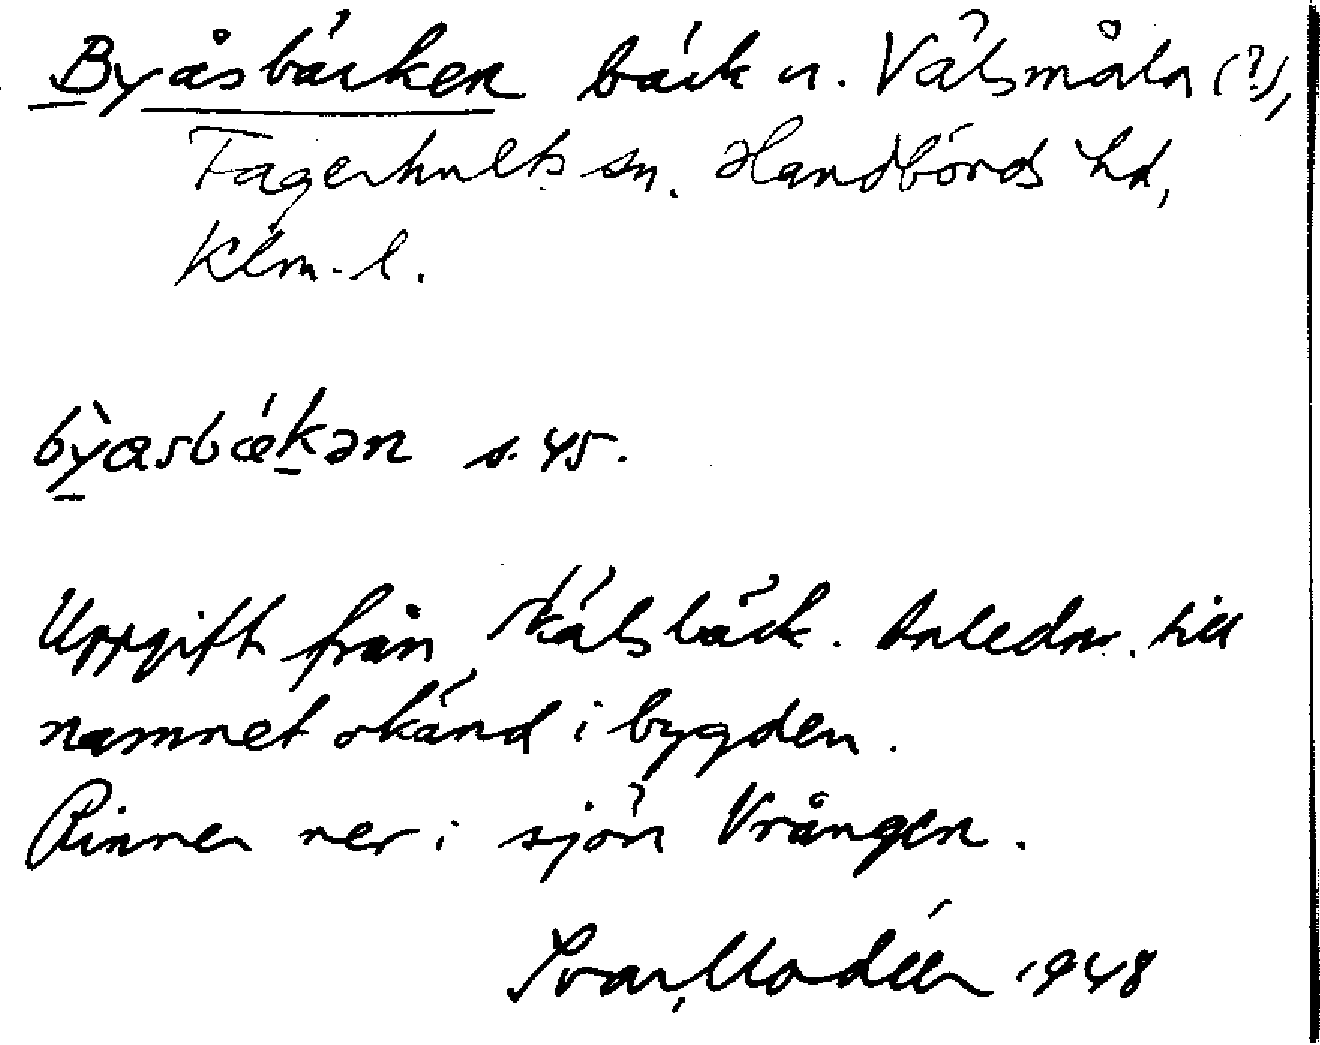 Byåsbäcken bäck n. Välsmåla (?),
Fagerhults sn. Handbörds hd,
Klm. l.
bỳasbǽkən s. 45.
Uppgift från Skälsbäck. Anledn. till
namnet okänd i bygden.
Rinner ner i sjön Vrången.
Ivar Modéer 1948